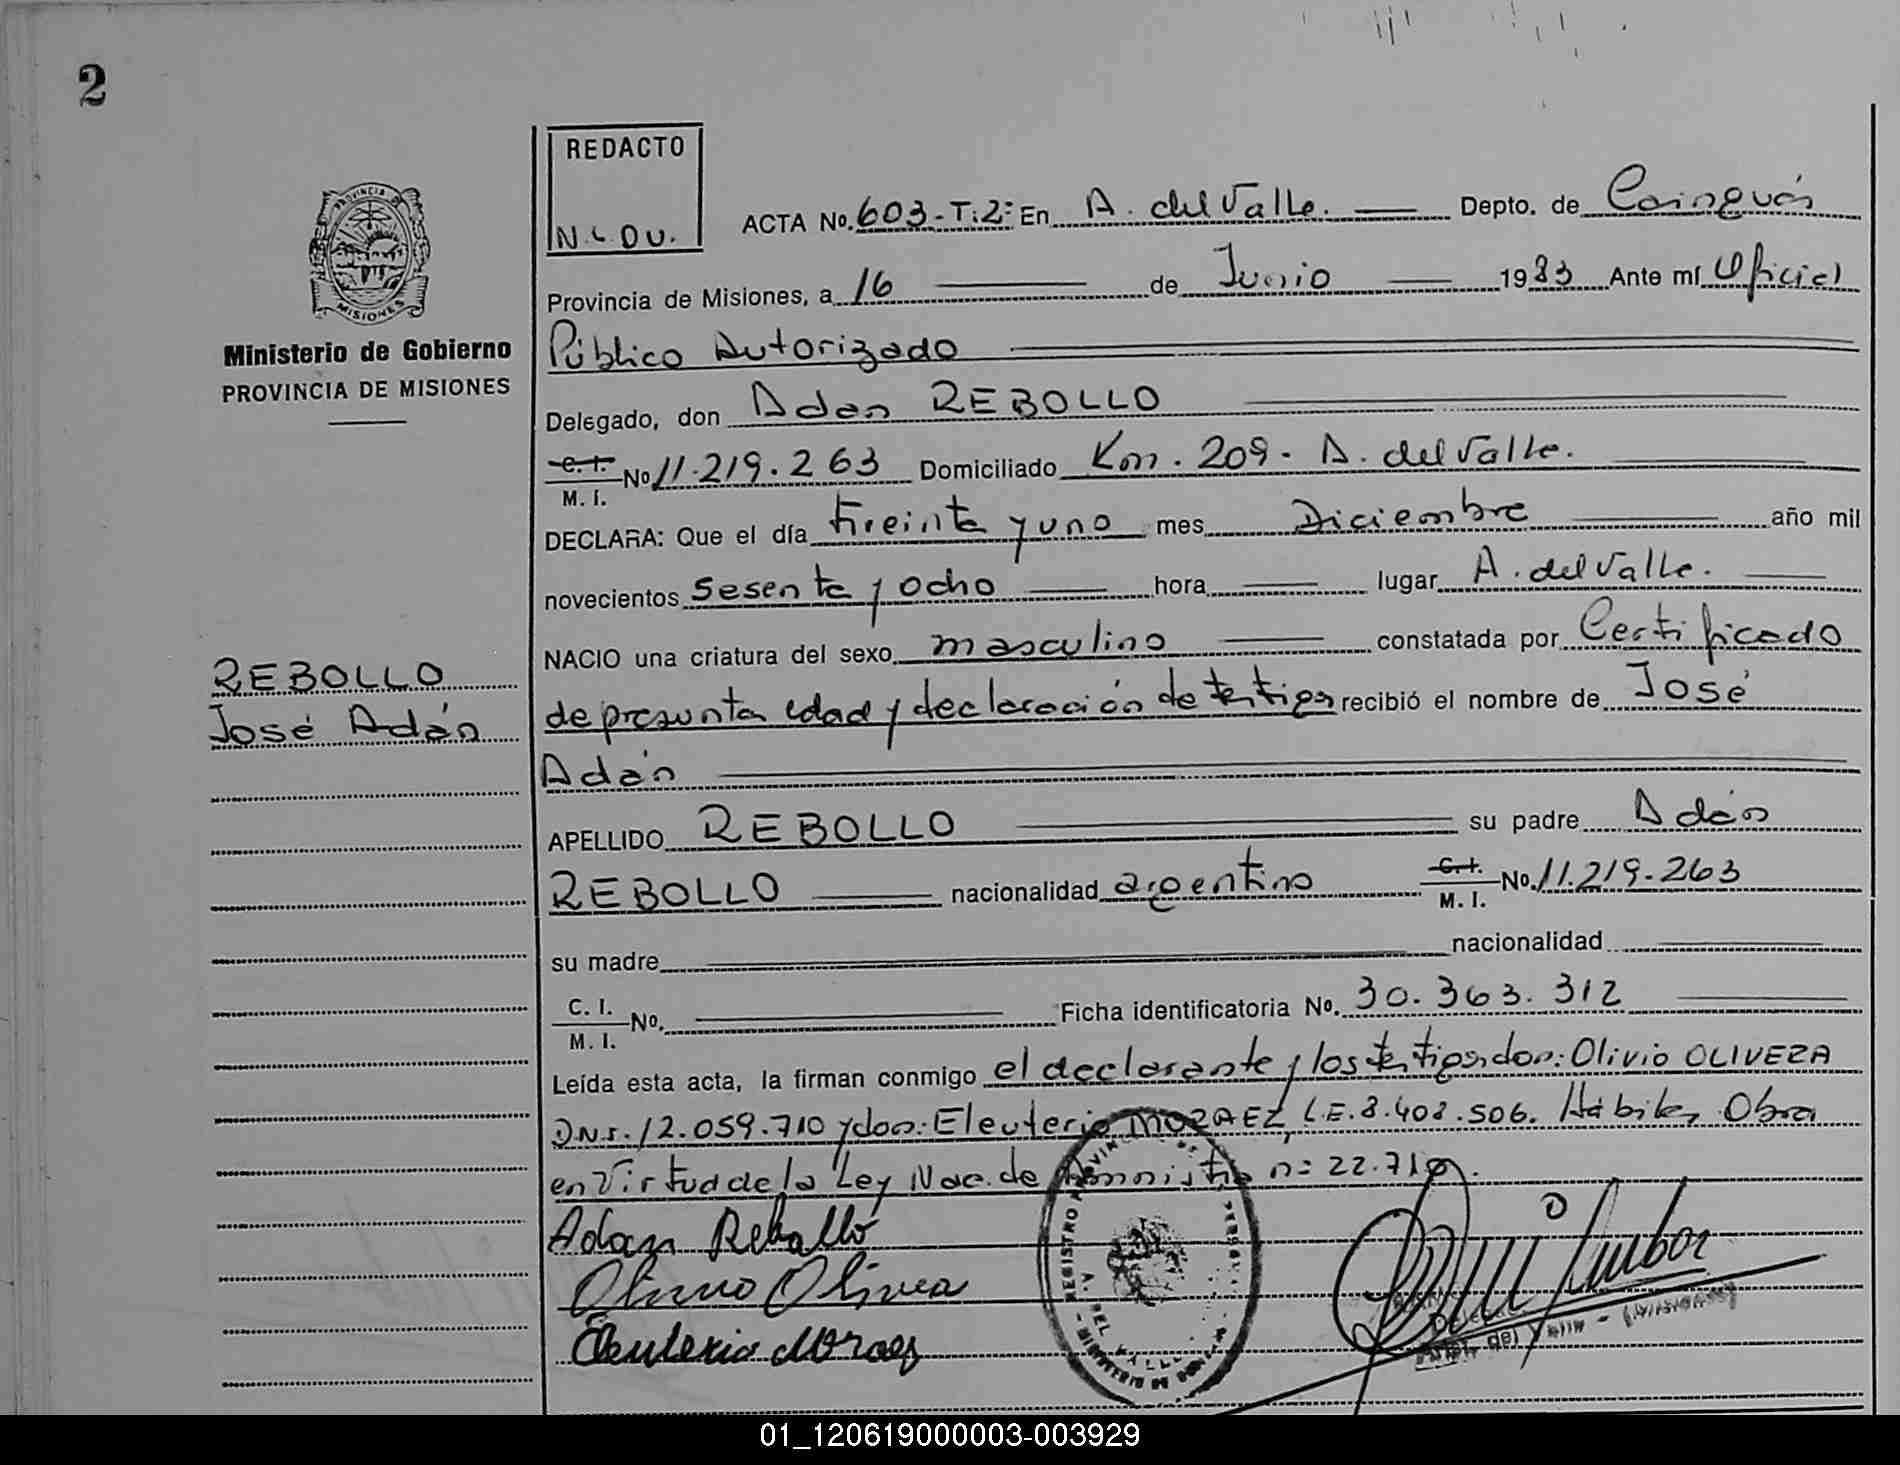 2
REDACTO
N.L.DU.
PROVINCIA
MISIONES
Ministerio de Gobierno
PROVINCIA DE MISIONES
REBOLLO
José Adán
ACTA No. 603-T:2: En A. del Valle. Depto. de Cainguás
Provincia de Misiones, a 16 de Junio 1983 Ante mí Oficial
Público Autorizado
Delegado, don Adan REBOLLO
C. I. M. I. No 11.219.263 Domiciliado Km. 209 - A. del Valle.
DECLARA: Que el día treinta y uno mes Diciembre año mil
novecientos sesenta y ocho hora lugar A. del Valle.
NACIO una criatura del sexo masculino constatada por Certificado
de presunta edad y declaración de testigos recibió el nombre de José
Adán
APELLIDO REBOLLO su padre Adán
REBOLLO nacionalidad argentino C. I. M. I. No. 11.219.263
su madre nacionalidad
C. I. M. I. No. Ficha identificatoria No. 30.363.312
Leída esta acta, la firman conmigo el declarante y los testigos don: Olivio OLIVERA
D.N.I. 12.059.710 y don: Eleuterio MORAEZ, L.E. 8.408.506. Hábiles, Obra
en Virtud de la Ley Nac. de Amnistia n: 22.710.
Adan Rebollo
Olivio Olivera
Eleuterio Moraez
01_120619000003-003929